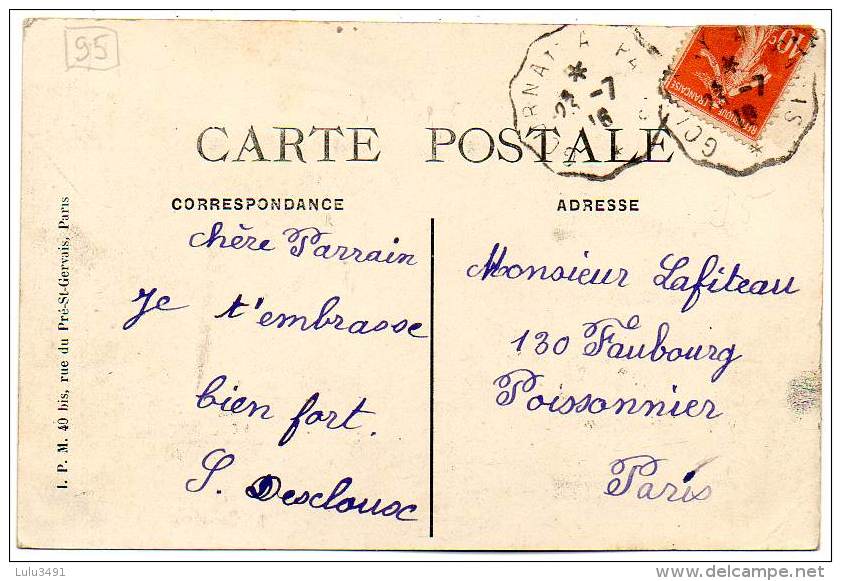 95
CARTE POSTALE
CORRESPONDANCE
chère Parrain
Je t'embrasse
bien fort.
S. Desclouse
ADRESSE
Monsieur Lafiteau
130 Faubourg
Poissonnier
Paris
I. P. M. 40 bis, rue du Pré-St-Gervais, Paris
GOURNAY A PARIS
* 23-7
16
*
10c
REPUBLIQUE FRANÇAISE
Lulu3491
www.delcampe.net